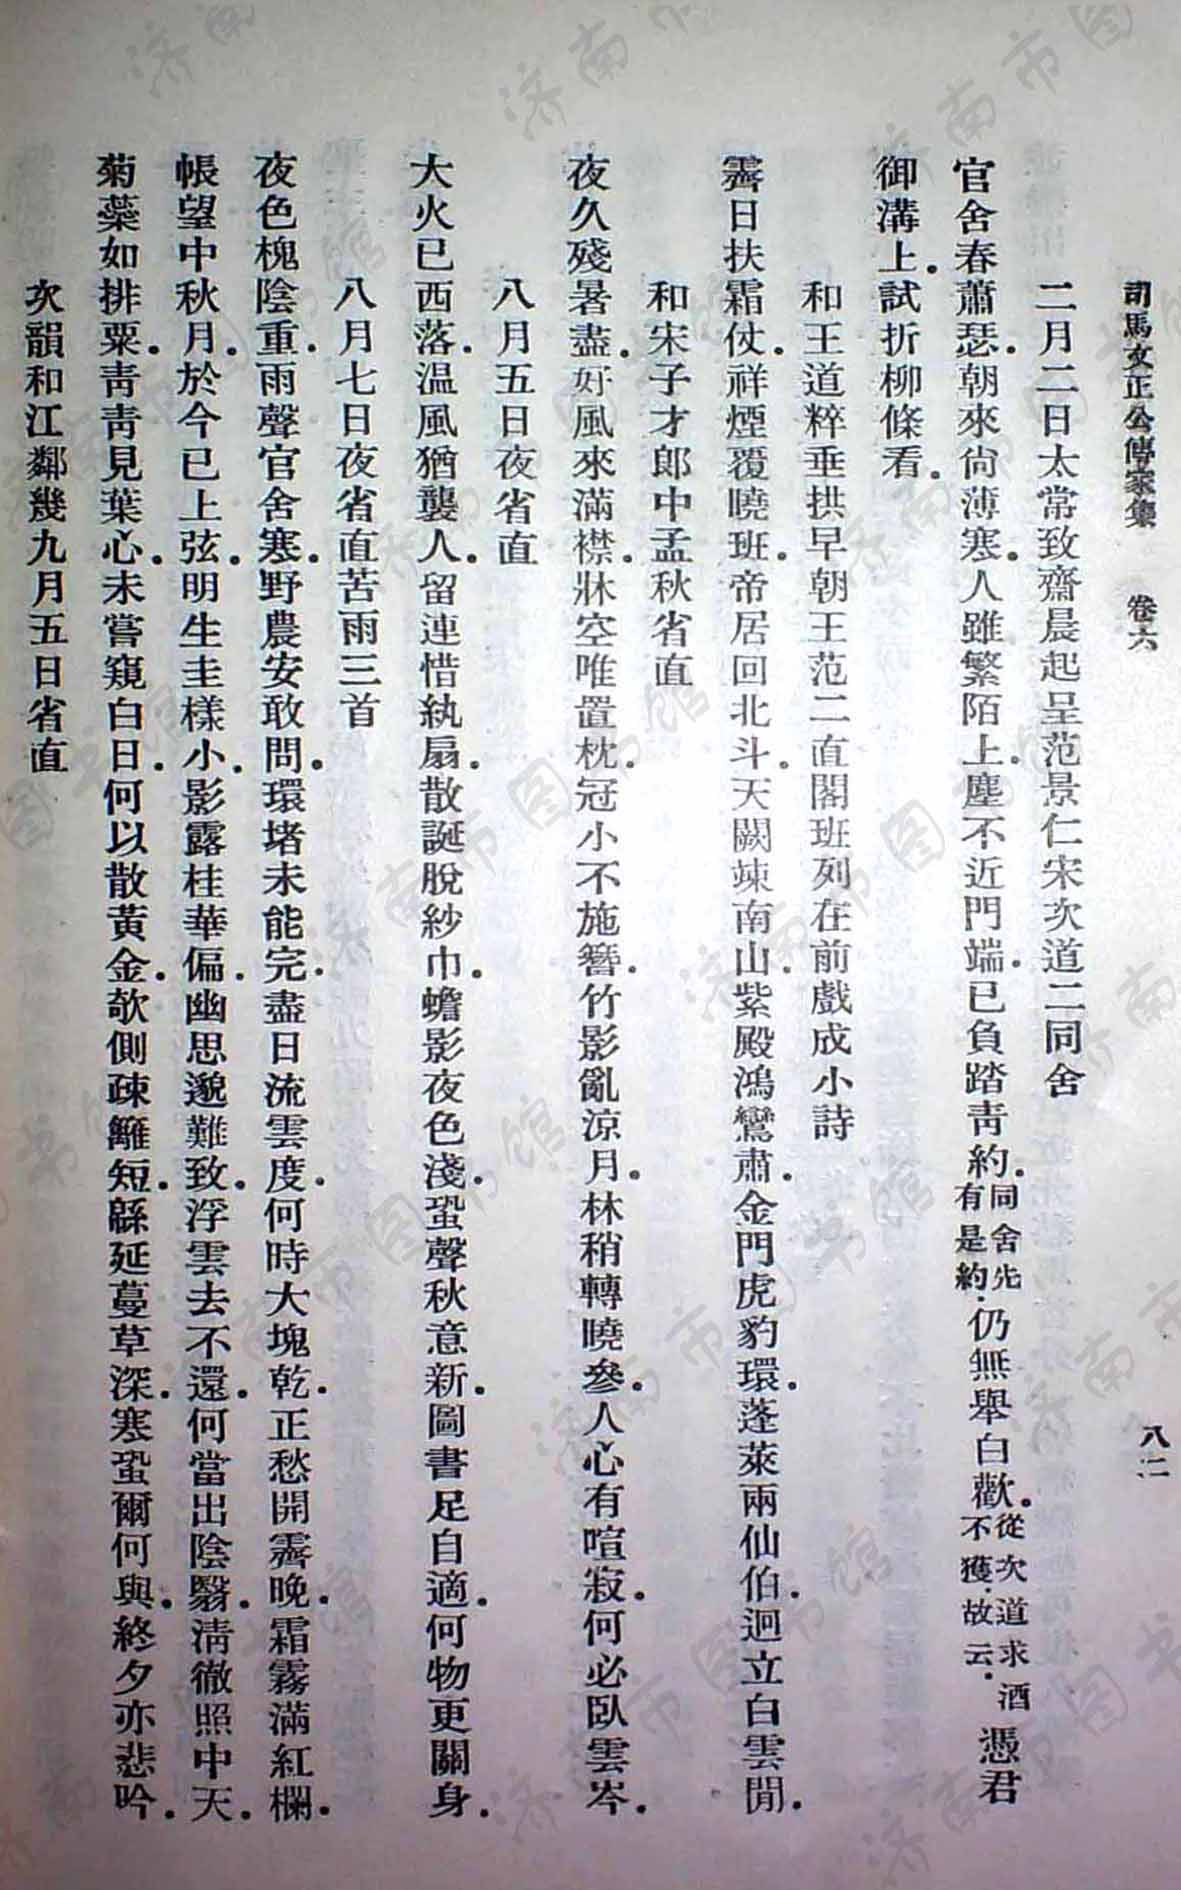 司馬文正公傳家集　卷六　八二
二月二日太常致齋晨起呈范景仁宋次道二同舍
官舍春蕭瑟．朝來尙薄寒．人雖繁陌上．塵不近門端．已負踏靑約．同舍先有是約．仍無舉白歡．從次道求酒不獲．故云．憑君
御溝上．試折柳條看．
和王道粹垂拱早朝王范二直閣班列在前戲成小詩
霽日扶霜仗．祥煙覆曉班．帝居回北斗．天闕竦南山．紫殿鴻鸞肅．金門虎豹環．蓬萊兩仙伯．迴立白雲閒．
和宋子才郎中孟秋省直
夜久殘暑盡．好風來滿襟．牀空唯置枕．冠小不施簪．竹影亂涼月．林稍轉曉參．人心有喧寂．何必臥雲岑．
八月五日夜省直
大火已西落．温風猶襲人．留連惜紈扇．散誕脫紗巾．蟾影夜色淺．蛩聲秋意新．圖書足自適．何物更關身．
八月七日夜省直苦雨三首
夜色槐陰重．雨聲官舍寒．野農安敢問．環堵未能完．盡日流雲度．何時大塊乾．正愁開霽晚．霜霧滿紅欄．
悵望中秋月．於今已上弦．明生圭樣小．影露桂華偏．幽思邈難致．浮雲去不還．何當出陰翳．淸徹照中天．
菊蘂如排粟．靑靑見葉心．未嘗窺白日．何以散黃金．欹側疎籬短．緜延蔓草深．寒蛩爾何與．終夕亦悲吟．
次韻和江鄰幾九月五日省直
济南市图书馆